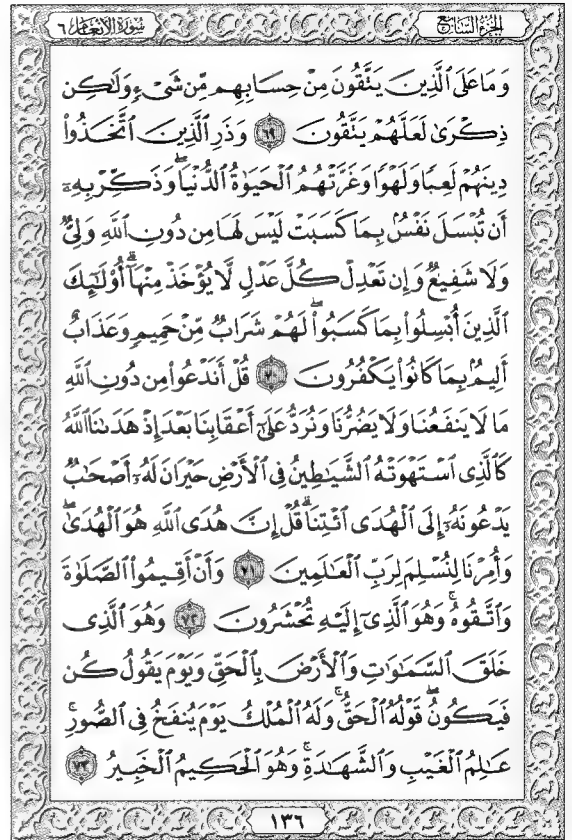 سُورَةُ الأَنْعَامِ ٦
الجُزْءُ السَّابِعُ
وَمَا عَلَى ٱلَّذِينَ يَتَّقُونَ مِنْ حِسَابِهِم مِّن شَىْءٍ وَلَٰكِن
ذِكْرَىٰ لَعَلَّهُمْ يَتَّقُونَ ٦٩ وَذَرِ ٱلَّذِينَ ٱتَّخَذُوا۟
دِينَهُمْ لَعِبًا وَلَهْوًا وَغَرَّتْهُمُ ٱلْحَيَوٰةُ ٱلدُّنْيَا ۚ وَذَكِّرْ بِهِۦٓ
أَن تُبْسَلَ نَفْسٌۢ بِمَا كَسَبَتْ لَيْسَ لَهَا مِن دُونِ ٱللَّهِ وَلِىٌّ
وَلَا شَفِيعٌ وَإِن تَعْدِلْ كُلَّ عَدْلٍ لَّا يُؤْخَذْ مِنْهَآ ۗ أُو۟لَٰٓئِكَ
ٱلَّذِينَ أُبْسِلُوا۟ بِمَا كَسَبُوا۟ ۖ لَهُمْ شَرَابٌ مِّنْ حَمِيمٍ وَعَذَابٌ
أَلِيمٌۢ بِمَا كَانُوا۟ يَكْفُرُونَ ٧٠ قُلْ أَنَدْعُوا۟ مِن دُونِ ٱللَّهِ
مَا لَا يَنفَعُنَا وَلَا يَضُرُّنَا وَنُرَدُّ عَلَىٰٓ أَعْقَابِنَا بَعْدَ إِذْ هَدَىٰنَا ٱللَّهُ
كَٱلَّذِى ٱسْتَهْوَتْهُ ٱلشَّيَٰطِينُ فِى ٱلْأَرْضِ حَيْرَانَ لَهُۥٓ أَصْحَٰبٌ
يَدْعُونَهُۥٓ إِلَى ٱلْهُدَى ٱئْتِنَا ۗ قُلْ إِنَّ هُدَى ٱللَّهِ هُوَ ٱلْهُدَىٰ ۖ
وَأُمِرْنَا لِنُسْلِمَ لِرَبِّ ٱلْعَٰلَمِينَ ٧١ وَأَنْ أَقِيمُوا۟ ٱلصَّلَوٰةَ
وَٱتَّقُوهُ ۚ وَهُوَ ٱلَّذِىٓ إِلَيْهِ تُحْشَرُونَ ٧٢ وَهُوَ ٱلَّذِى
خَلَقَ ٱلسَّمَٰوَٰتِ وَٱلْأَرْضَ بِٱلْحَقِّ ۖ وَيَوْمَ يَقُولُ كُن
فَيَكُونُ ۚ قَوْلُهُ ٱلْحَقُّ ۚ وَلَهُ ٱلْمُلْكُ يَوْمَ يُنفَخُ فِى ٱلصُّورِ ۚ
عَٰلِمُ ٱلْغَيْبِ وَٱلشَّهَٰدَةِ ۚ وَهُوَ ٱلْحَكِيمُ ٱلْخَبِيرُ ٧٣
١٣٦